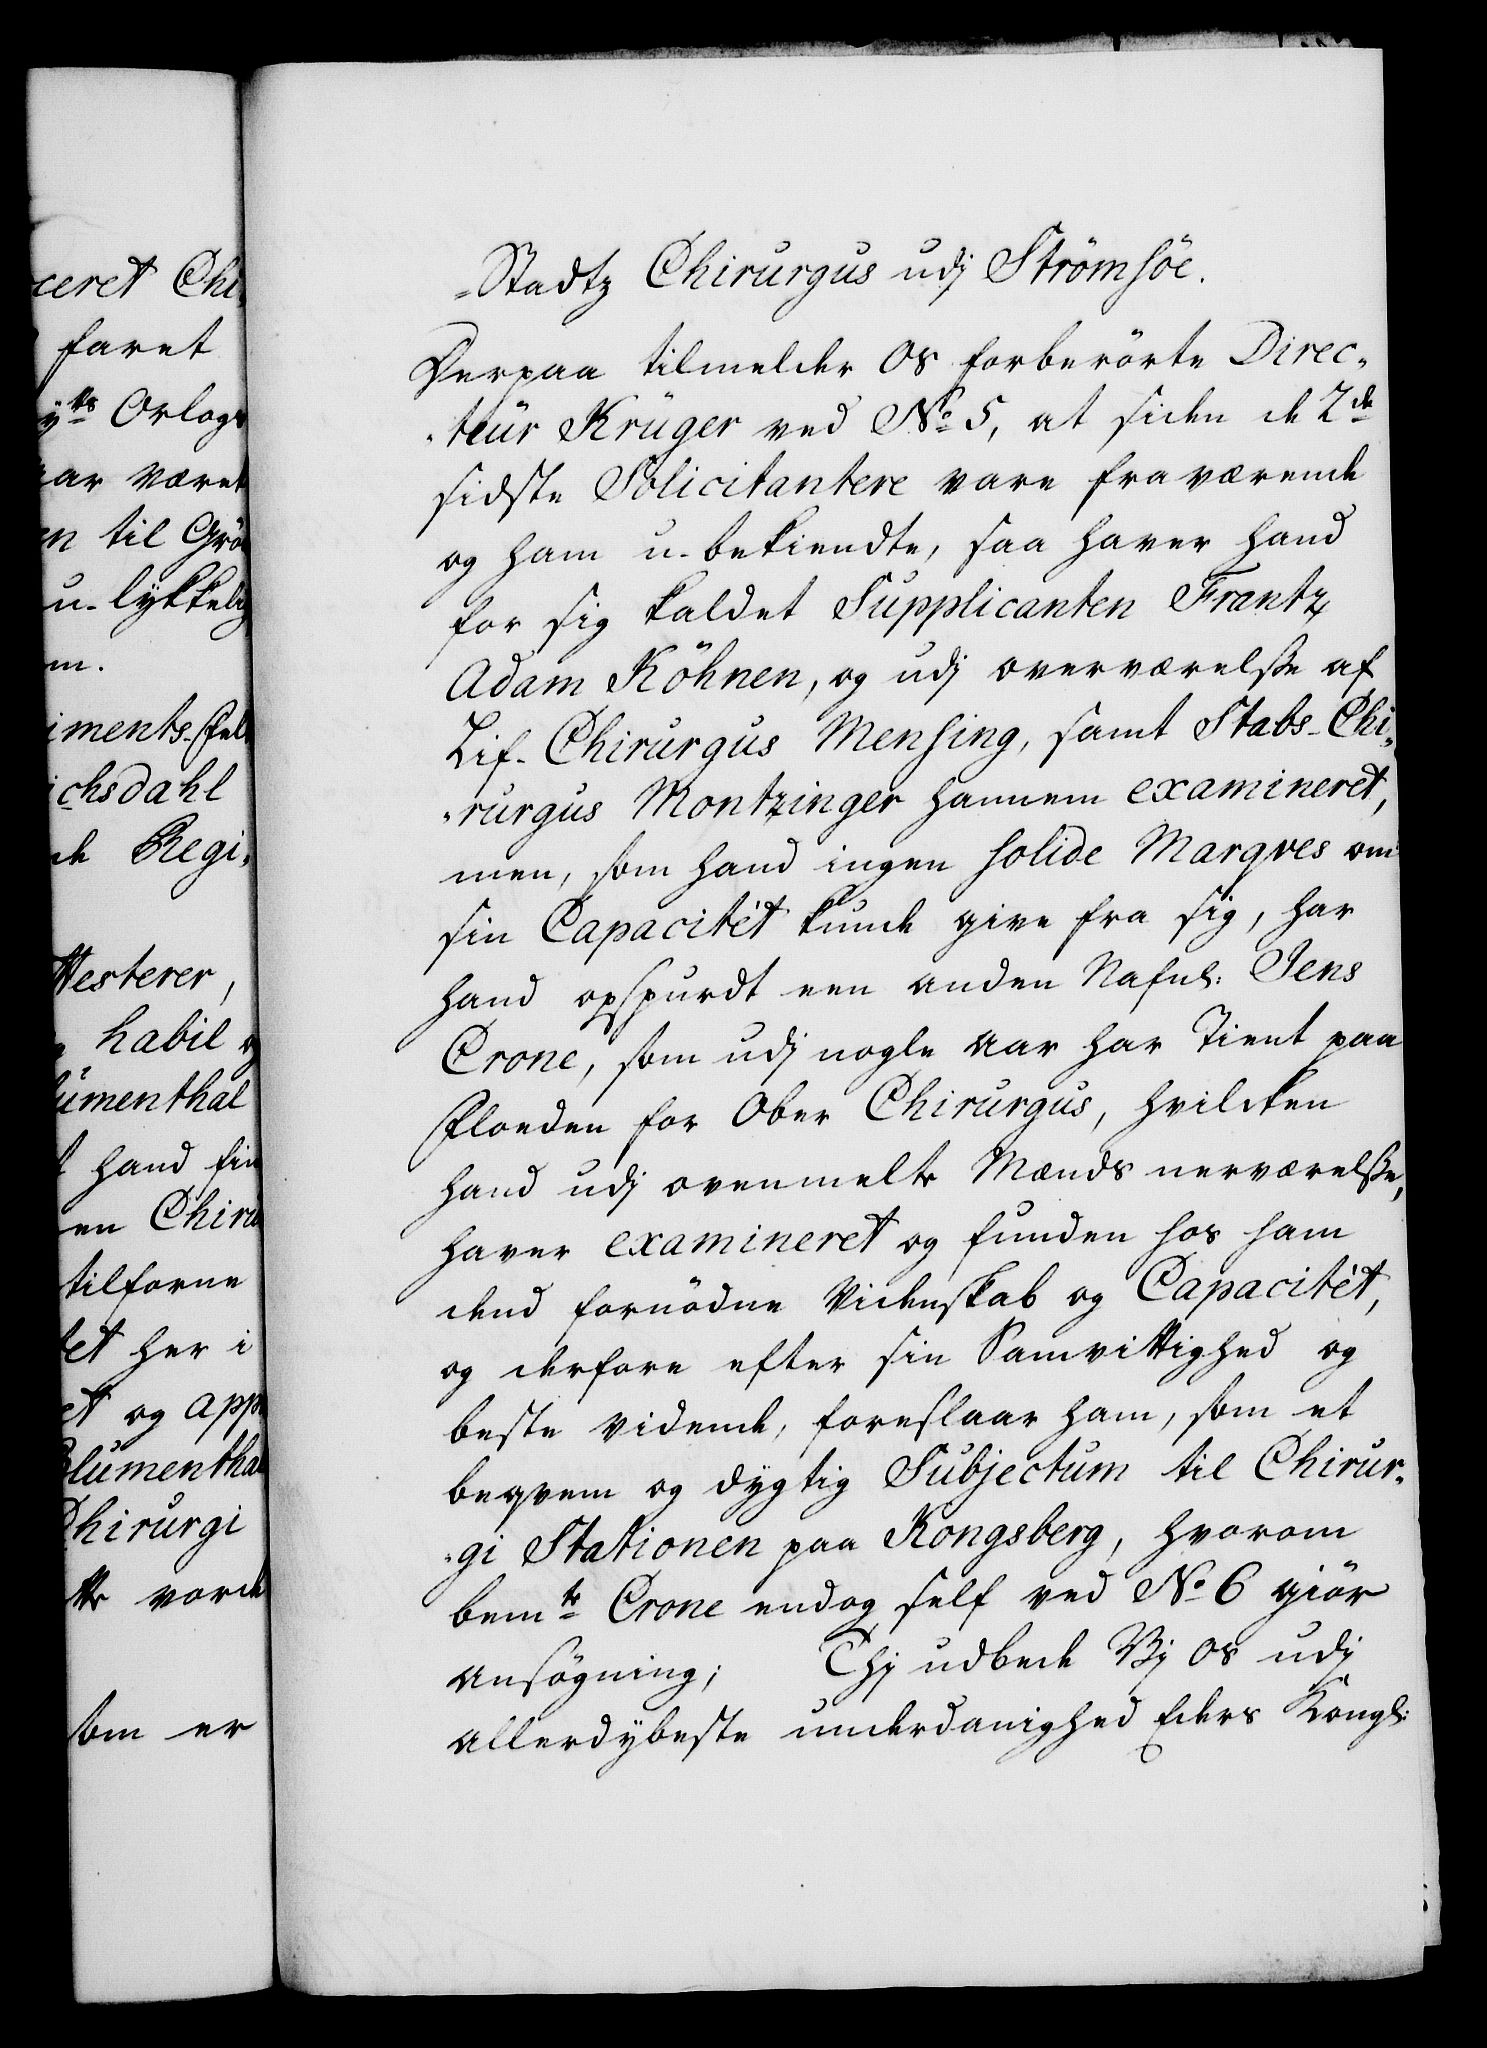 ceret Chi-
faret
Orlogs
ar været
n til Grön
u-lykkelig
m.
iments-Fel
ichsdahl
de Regi-
Attesterer,
habil og
lümenthal
hand sin
en Chiru
tilforne
tet her i
et og app
Blümenthal
Chirurgi
vorde
som er
-Stadtz Chirurgus udj Strömsöe.
Derpaa tilmelder os forberörte Direc-
-teür Krüger ved No 5, at siden de 2de
sidste Solicitantere vare fraværende
og ham u-bekiendte, saa haver hand
for sig kaldet Supplicanten Frantz
Adam Köhnen, og udj overværelse af
Lif-Chirurgus Mensing, samt Stabs-Chi-
-rurgus Montzinger hannem examineret,
men, som hand ingen solide Marqves om
sin Capacitét kunde give fra sig, har
hand opspurdt een anden Nafnl: Jens
Crone, som udj nogle Aar har Tient paa
Floeden for Ober Chirurgus, hvilcken
hand udj ovenmelte Mænds nerværelse,
haver examineret og funden hos ham
dend fornödne Videnskab og Capacitét,
og derfore efter sin Samvittighed og
beste vidende, foreslaar ham, som et
beqvem og dygtig Subjectum til Chirur-
-gi Stationen paa Kongsberg, hvorom
bemte Crone endog self ved No 6 giör
ansögning; Thj udbede Vj os udj
allerdybeste underdanighed Eders Kongl: